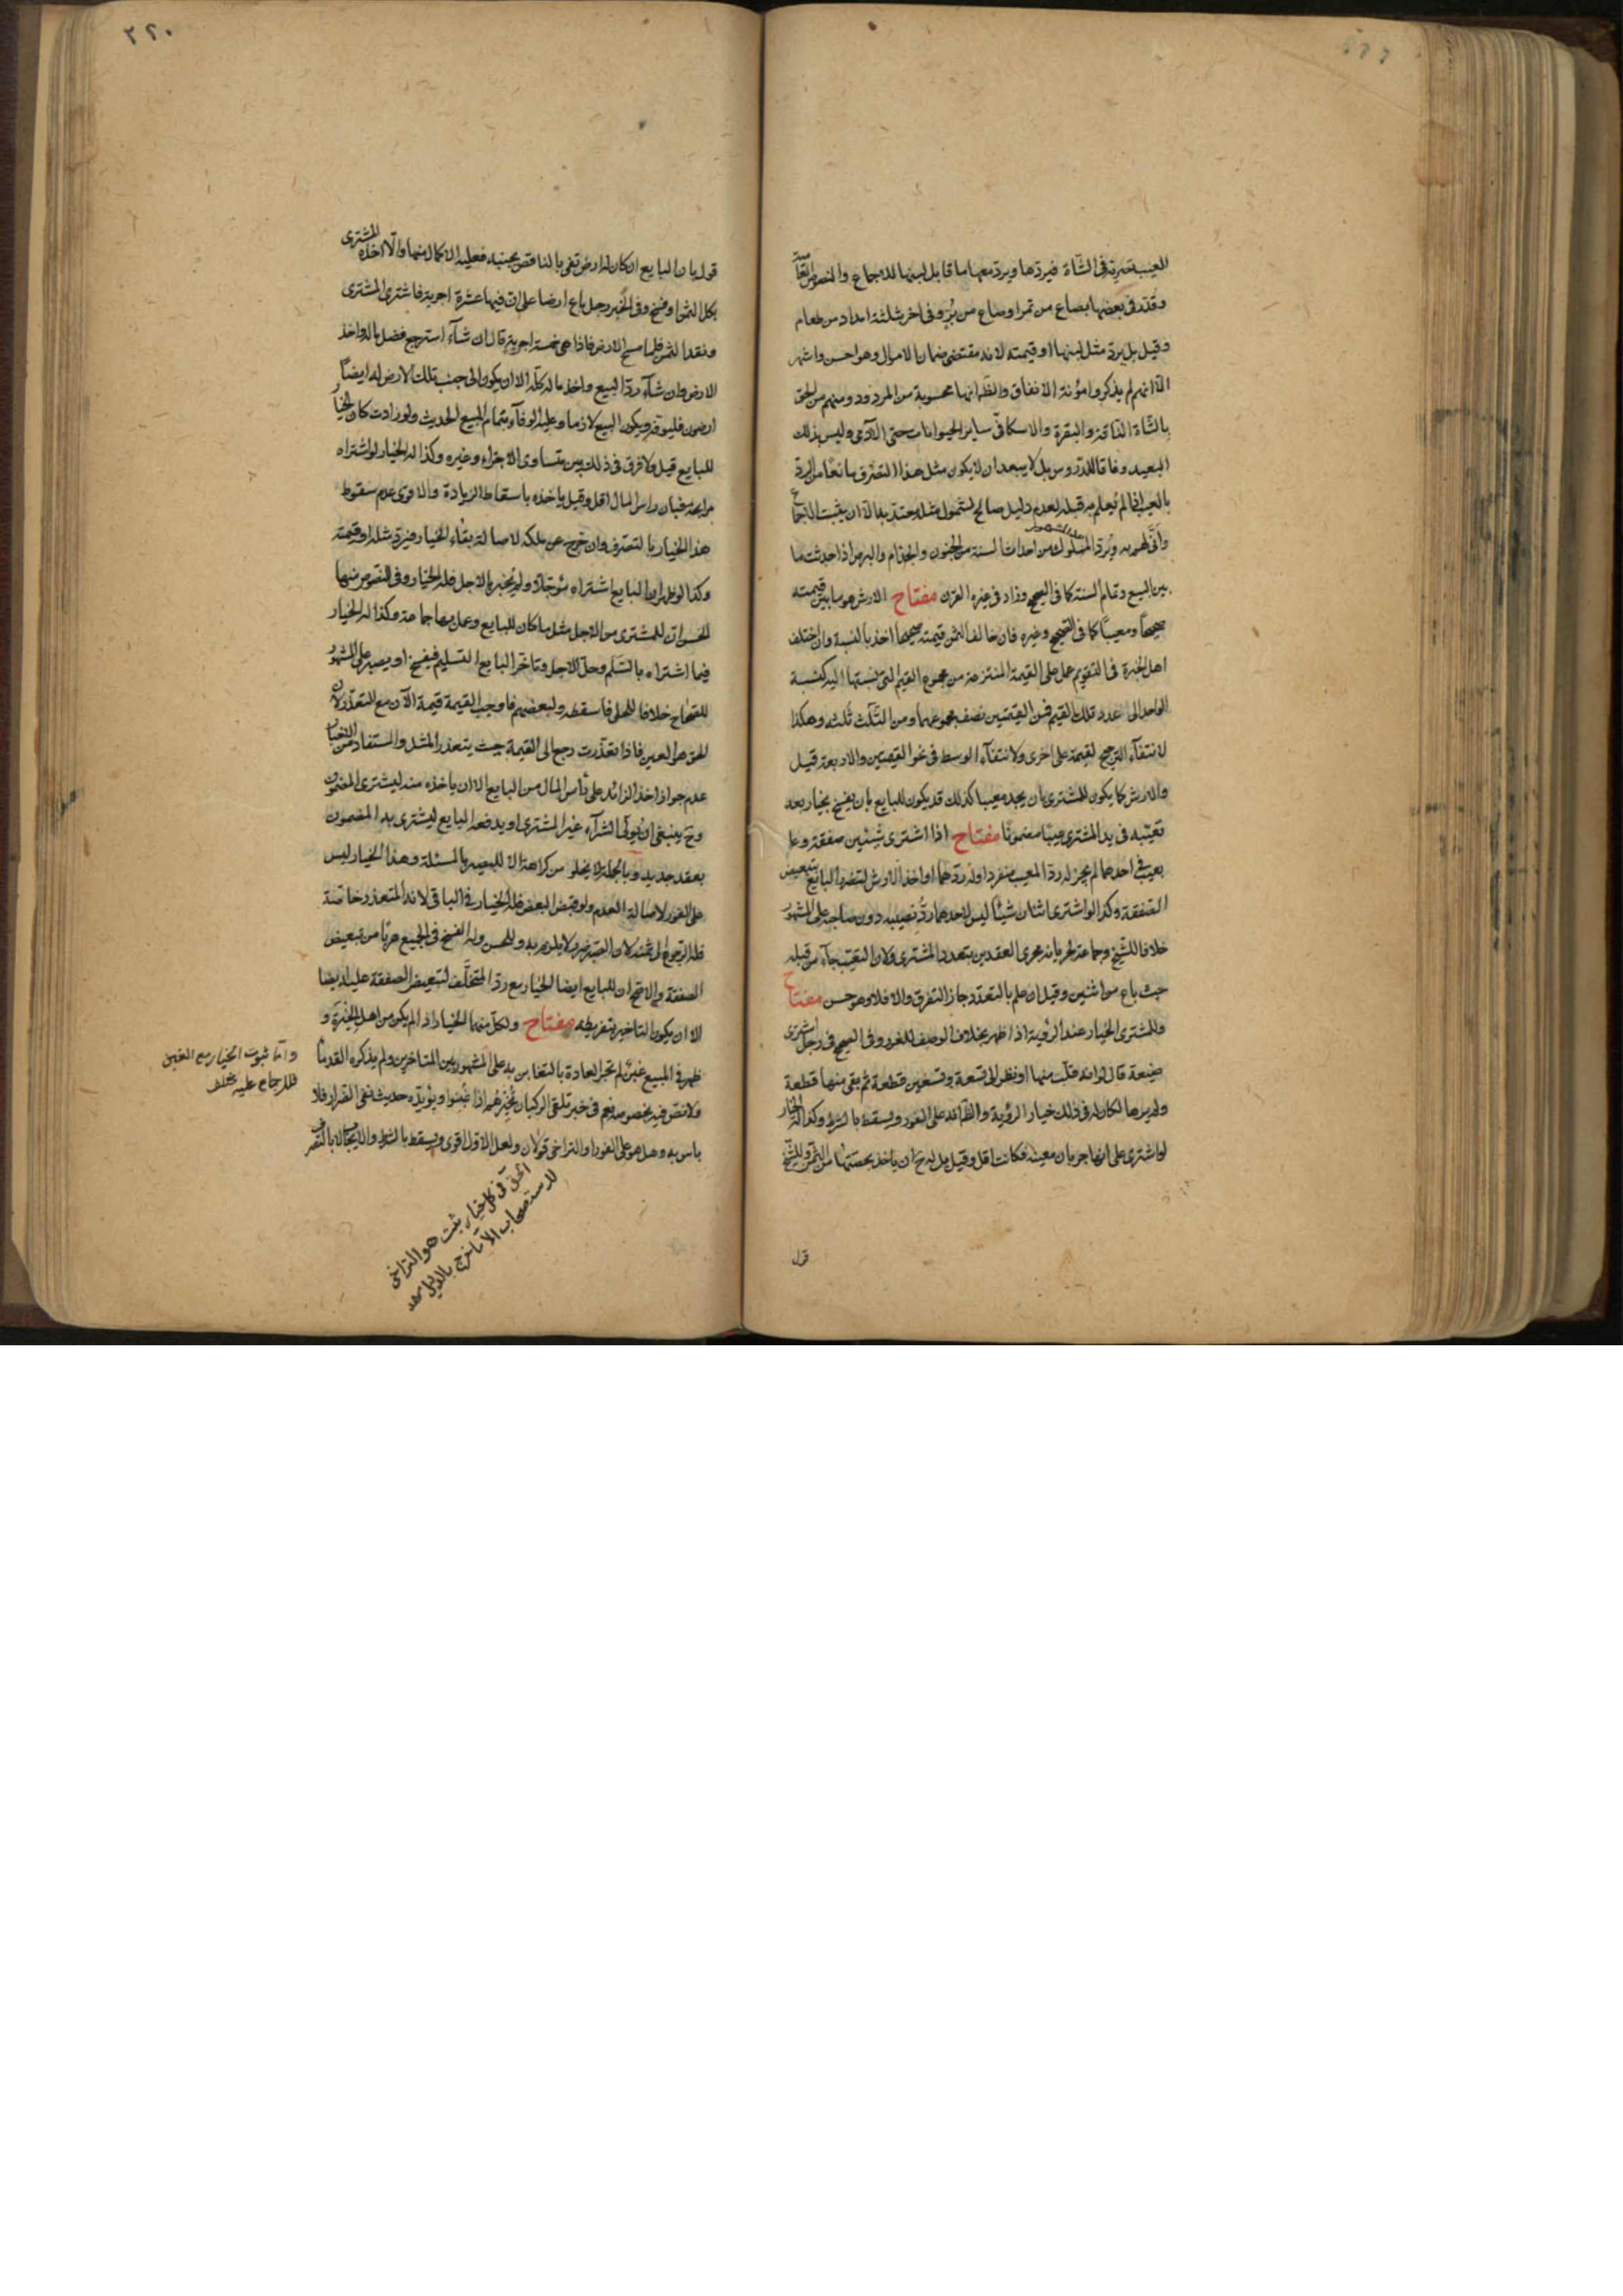 العيب تصرية في الشاة فيردها ويرد معها ما قابل لبنها للاجماع والنصوص
وقدر في بعضها بصاع من تمر او صاع من بر وفي اخر بثلثة امداد من طعام
وقيل بل يرد مثل لبنها او قيمته لانه مقتضى ضمان الاموال وهو احسن واشهر
الا انهم لم يذكروا مؤنة الانفاق والظ انها محسوبة من المردود ومنهم من الحق
بالشاة الناقة والبقرة والاسكافي ساير الحيوانات حتى الآدمي وليس بذلك
البعيد وفاقا للدروس بل لا يبعد ان لا يكون مثل هذا التصرف مانعا من الرد
بالعيب اذا لم يعلم من قبله لعدم دليل صالح لشمول مثله يعتد به الا ان يثبت الاجماع
وانى لهم به ويرد المملوك من احداث السنة من الجنون والجذام والبرص اذا حدثت ما
بين البيع وتمام السنة كما في الصحيح وزاد في غيره القرن مفتاح الارش هو ما بين قيمته
صحيحا ومعيبا كما في الصحيح وغيره فان خالف الثمن قيمته صحيحا اخذ بالنسبة وان اختلف
اهل الخبرة في التقويم عمل على القيمة المنتزعة من مجموع القيم التي نسبتها اليه كنسبة
الواحد الى عدد تلك القيم فمن القيمتين نصف مجموعهما ومن الثلث ثلثه وهكذا
لانتفاء الترجيح لقيمة على اخرى ولانتفاء الوسط في نحو القيمتين والاربعة قيل
والارش كما يكون للمشتري بان يجد معيبا كذلك قد يكون للبايع بان يفسخ بخياره بعد
تعيبه في يد المشتري عيبا مضمونا مفتاح اذا اشترى شيئين صفقة وعلم
بعيب في احدهما لم يجز له رد المعيب منفردا وله ردهما او اخذ الارش لتضرر البايع بتبعيض
الصفقة وكذا لو اشترى اثنان شيئا ليس لاحدهما رد نصيبه دون صاحبه على المشهور
خلافا للشيخ وجماعة لجريانه مجرى العقدين بتعدد المشتري ولان التعيب جاء من قبله
حيث باع من اثنين وقيل ان علم بالتعدد جاز التفرق والا فلا وهو حسن مفتاح
وللمشتري الخيار عند الرؤية اذا ظهر بخلاف الوصف للضرر وفي الصحيح في رجل اشترى
ضيعة قال لو انه قلب منها او نظر الى تسعة وتسعين قطعة ثم بقي منها قطعة
ولم يرها لكان له في ذلك خيار الرؤية والظ انه على الفور ويسقط بالشرط وكذا له الخيار
لو اشترى على انها جربان معينة فكانت اقل وقيل بل له ح ان ياخذ بحصتها من الثمن وللشيخ
قول
٢٢٠
قول بان البايع ان كان له ارض تفي بالناقص بجنبه فعليه الاكمال منها والا اخذه المشتري
بكل الثمن او فسخ وفي الخبر رجل باع ارضا على ان فيها عشرة اجربة فاشترى المشتري
ونقد الثمن فلما مسح الارض فاذا هي خمسة اجربة قال ان شاء استرجع فضل ماله واخذ
الارض وان شاء رد البيع واخذ ماله كله الا ان يكون الى جنب تلك الارض له ايضا
ارضون فليوفه ويكون البيع لازما وعليه الوفاء بتمام البيع الحديث ولو زادت كان الخيار
للبايع قيل ولا فرق في ذلك بين متساوي الاجزاء وغيره وكذا له الخيار لو اشتراه
مرابحة فبان راس المال اقل وقيل ياخذه باسقاط الزيادة والاقوى عدم سقوط
هذا الخيار بالتصرف وان خرج عن ملكه لاصالة بقاء الخيار فيرد مثله او قيمته
وكذا لو ظهر ان البايع اشتراه مؤجلا ولم يخبره بالاجل فله الخيار وفي النصوص منها
الحسن ان للمشتري من الاجل مثل ما كان للبايع وعمل بها جماعة وكذا له الخيار
فيما اشتراه بالسلم وحل الاجل وتاخر البايع التسليم فيفسخ او يصبر على المشهور
للصحاح خلافا للحلي فاسقطه ولبعضهم فاوجب القيمة قيمة الآن مع التعذر لان
الحق هو العين فاذا تعذرت رجع الى القيمة حيث يتعذر المثل والمستفاد من الصحاح
عدم جواز اخذ الزائد على رأس المال من البايع الا ان ياخذه منه ليشتري المضمون
وح ينبغي ان يولي الشراء غير المشتري او يدفعه البايع ليشتري به المضمون
بعقد جديد وبالجملة لا يخلو من كراهة الا للبصير بالمسئلة وهذا الخيار ليس
على الفور لاصالة العدم ولو قبض البعض فله الخيار في الباقي لانه المتعذر خاصة
فله الرجوع الى ثمنه لان الصبر ضرر ولا يلزم به وللحسن وله الفسخ في الجميع هربا من تبعيض
الصفقة والاصح ان للبايع ايضا الخيار مع رد المتخلف لتبعيض الصفقة عليه ايضا
الا ان يكون التاخير بتفريطه مفتاح ولكل منهما الخيار اذا لم يكن من اهل الخبرة و
ظهر في المبيع غبن لم تجر العادة بالتغابن به على المشهور بين المتاخرين ولم يذكره القدماء
ولا نص فيه بخصوصه نعم في خبر تلقي الركبان تخييرهم اذا غبنوا ويؤيده حديث نفي الضرار فلا
باس به وهل هو على الفور او التراخي قولان ولعل الاول اقوى ويسقط بالشرط والايجاب لا بالتصرف
واما ثبوت الخيار مع الغبن
فللاجماع عليه
الحق في كل خيار يثبت هو التراخي
للاستصحاب الا ما خرج بالدليل